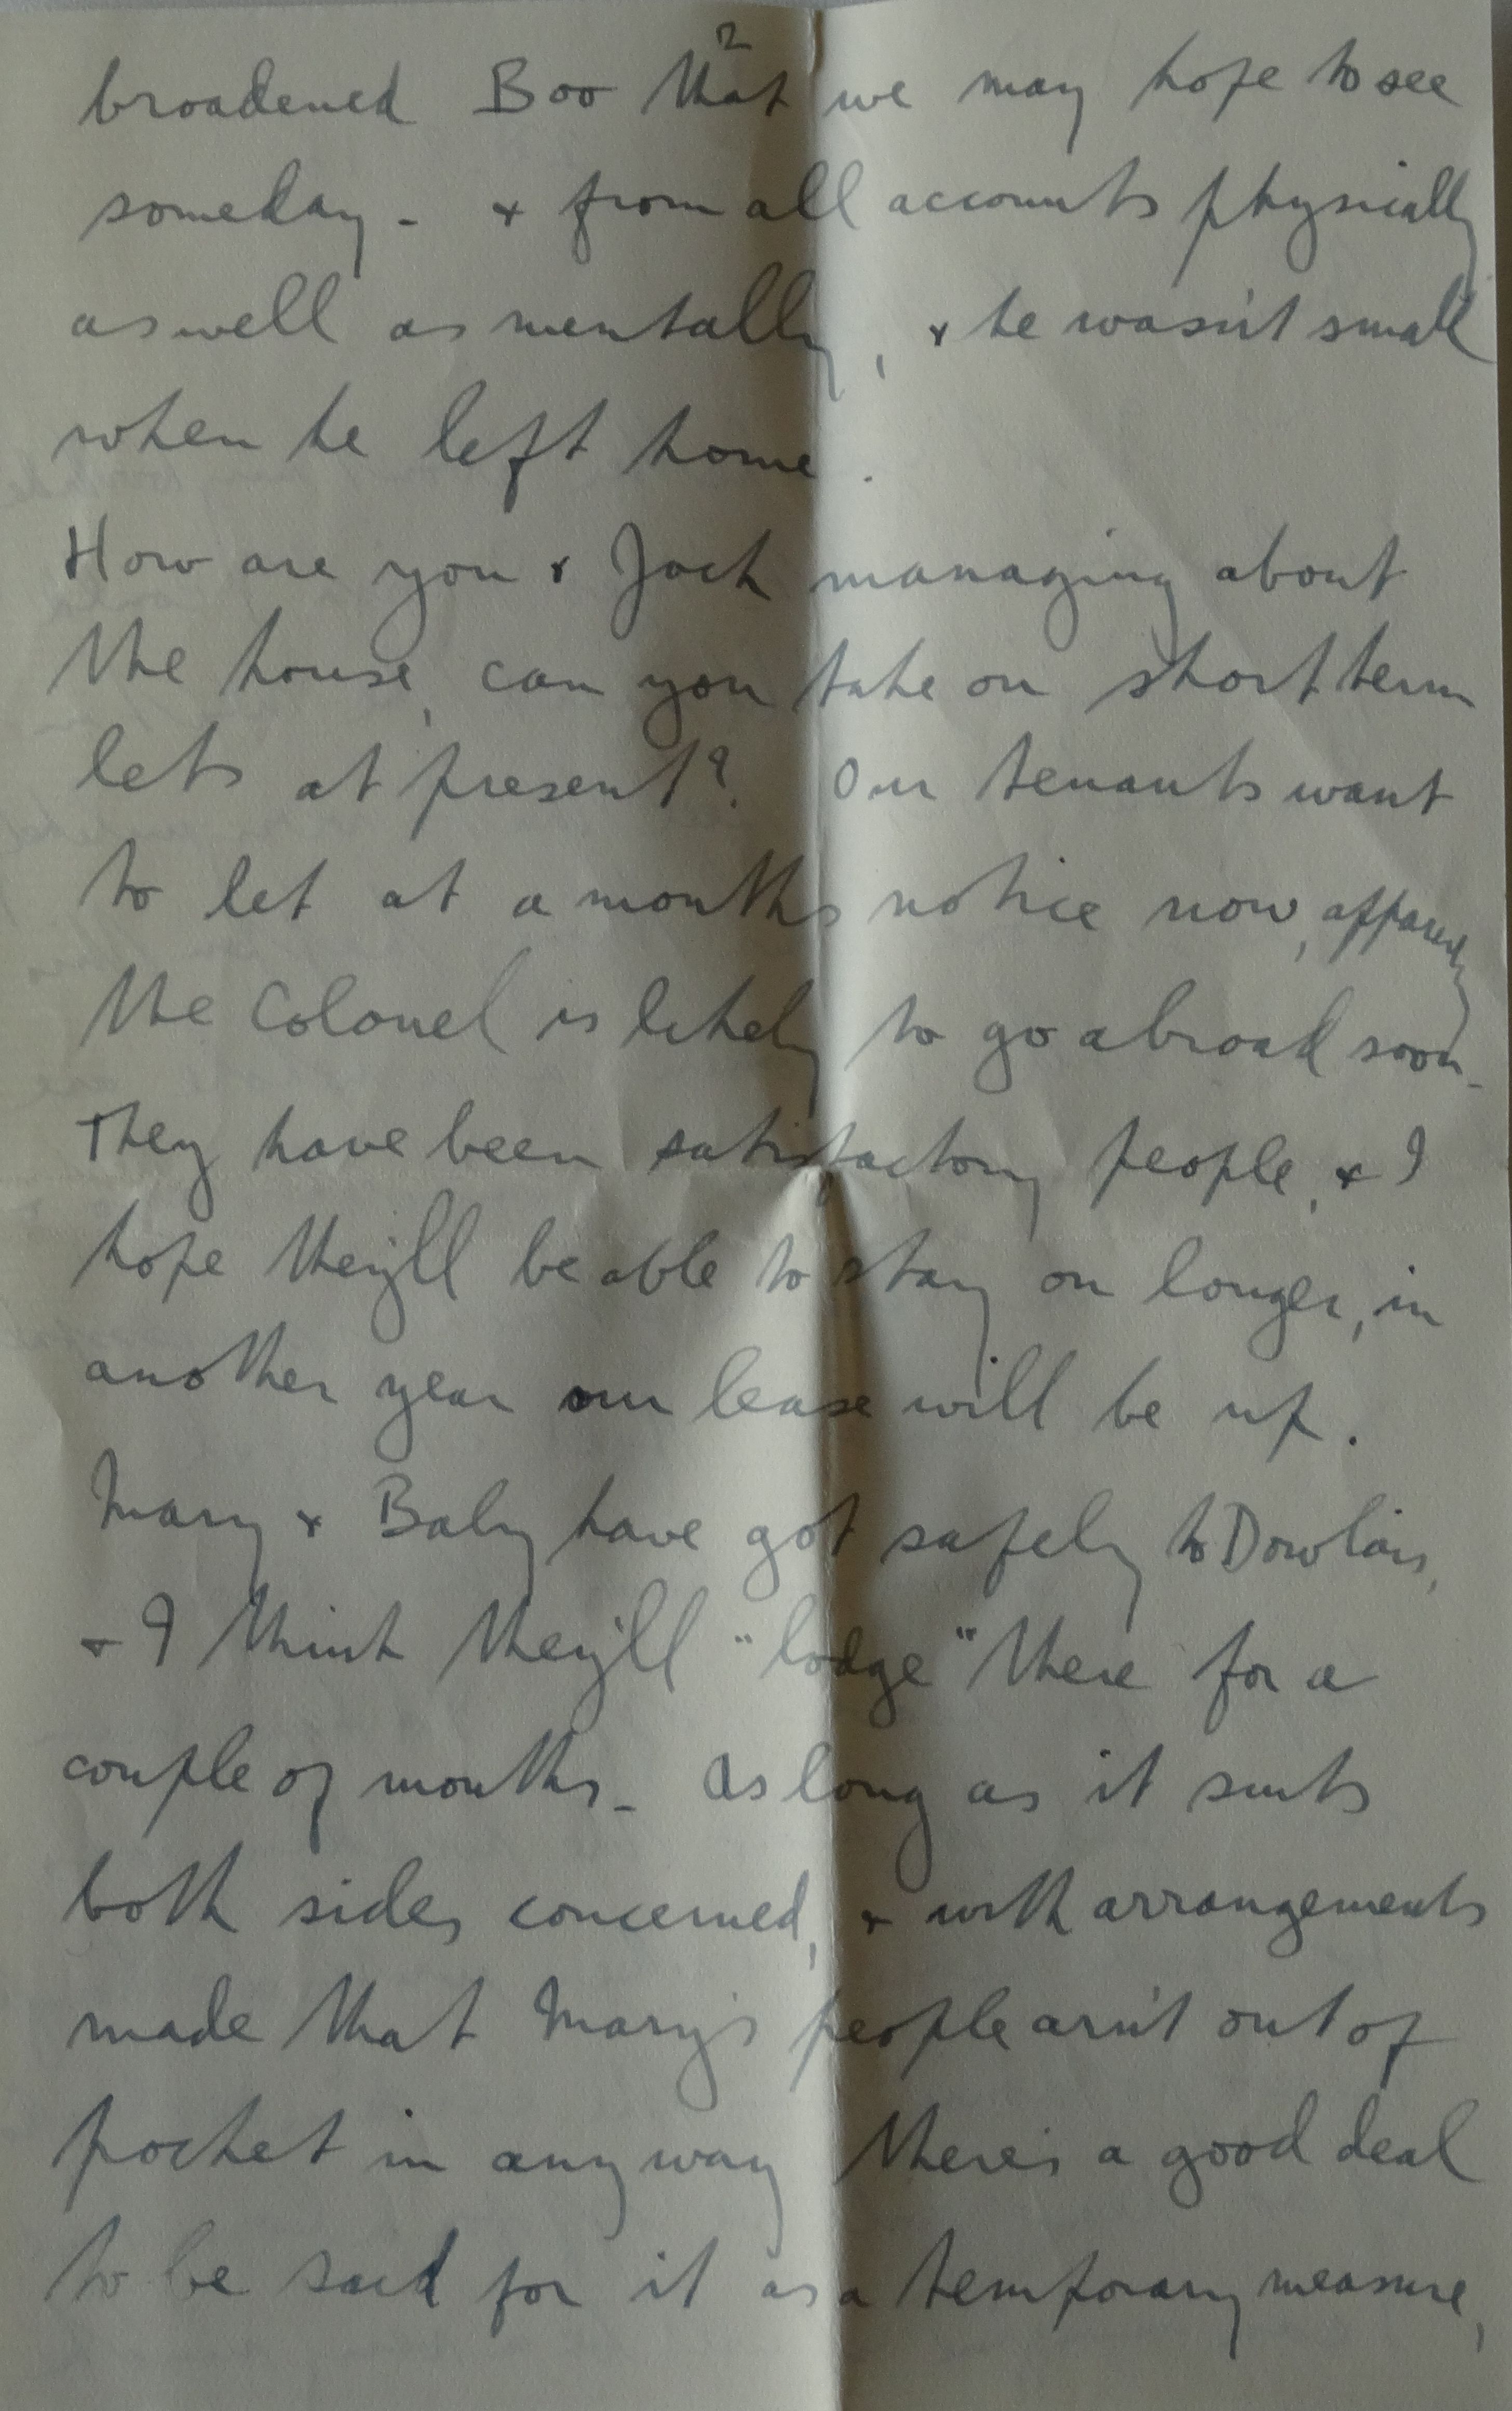 2
broadened Boo that we may hope to see
someday - & from all accounts physically
as well as mentally, & he wasn't small
when he left home.
How are you & Jack managing about
the house, can you take on short term
lets at present? Our tenants want
to let at a months notice now, apparently
the Colonel is likely to go abroad soon -
They have been satisfactory people, & I
hope they'll be able to stay on longer, in
another year our lease will be up.
Mary & Baby have got safely to Dowlais,
& I think they'll "lodge" there for a
couple of months - As long as it suits
both sides concerned, & with arrangements
made that Mary's people arn't out of
pocket in any way there's a good deal
to be said for it as a temporary measure,